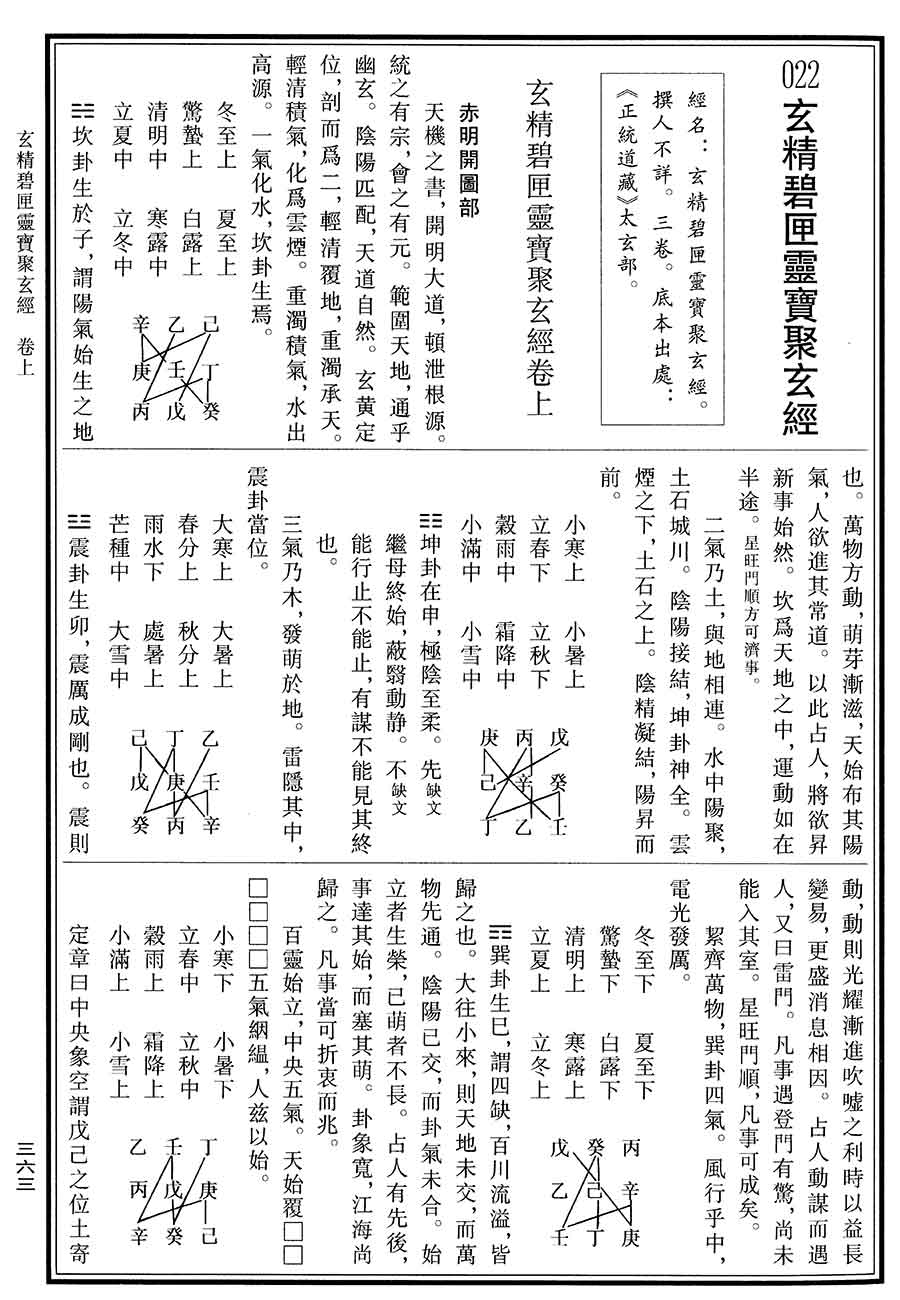 022玄精碧匣靈寶聚玄經
經名：玄精碧匣靈寶聚玄經。
撰人不詳。三卷。底本出處：
《正統道藏》太玄部。
玄精碧匣靈寶聚玄經卷上
赤明開圖部
天機之書，開明大道，頓泄根源。
統之有宗，會之有元。範圍天地，通乎
幽玄。陰陽匹配，天道自然。玄黃定
位，剖而爲二，輕清覆地，重濁承天。
輕清積氣，化爲雲煙。重濁積氣，水出
高源。一氣化水，坎卦生焉。
冬至上 夏至上
驚蟄上 白露上
清明中 寒露中
立夏中 立冬中
辛 乙 己
庚 壬 丁
丙 戊 癸
☵坎卦生於子，謂陽氣始生之地
也。萬物方動，萌芽漸滋，天始布其陽
氣，人欲進其常道。以此占人，將欲昇
新事始然。坎爲天地之中，運動如在
半途。星旺門順方可濟事。
二氣乃土，與地相連。水中陽聚，
土石城川。陰陽接結，坤卦神全。雲
煙之下，土石之上。陰精凝結，陽昇而
前。
小寒上 小暑上
立春下 立秋下
穀雨中 霜降中
小滿中 小雪中
庚 丙 戊
己 辛 癸
丁 乙 壬
☷坤卦在申，極陰至柔。先缺文
繼母終始，蔽翳動静。不缺文
能行止不能止，有謀不能見其終
也。
三氣乃木，發萌於地。雷隱其中，
震卦當位。
大寒上 大暑上
春分上 秋分上
雨水下 處暑上
芒種中 大雪中
己 丁 乙
戊 庚 壬
癸 丙 辛
☳震卦生卯，震厲成剛也。震則
動，動則光耀漸進吹噓之利時以益長
變易，更盛消息相因。占人動謀而遇
人，又曰雷門。凡事遇登門有驚，尚未
能入其室。星旺門順，凡事可成矣。
絜齊萬物，巽卦四氣。風行乎中，
電光發厲。
冬至下 夏至下
驚蟄下 白露下
清明上 寒露上
立夏上 立冬上
戊 癸 丙
乙 己 辛
壬 丁 庚
☴巽卦生巳，謂四缺，百川流溢，皆
歸之也。大往小來，則天地未交，而萬
物先通。陰陽已交，而卦氣未合。始
立者生榮，己萌者不長。占人有先後，
事達其始，而塞其萌。卦象寬，江海尚
歸之。凡事當可折衷而兆。
百靈始立，中央五氣。天始覆□□
□□□□五氣絪緼，人兹以始。
小寒下 小暑下
立春中 立秋中
穀雨上 霜降上
小滿上 小雪上
乙 壬 丁
丙 戊 庚
辛 癸 己
定章曰中央象空謂戊己之位土寄
玄精碧匣靈寶聚玄經 卷上
三六三